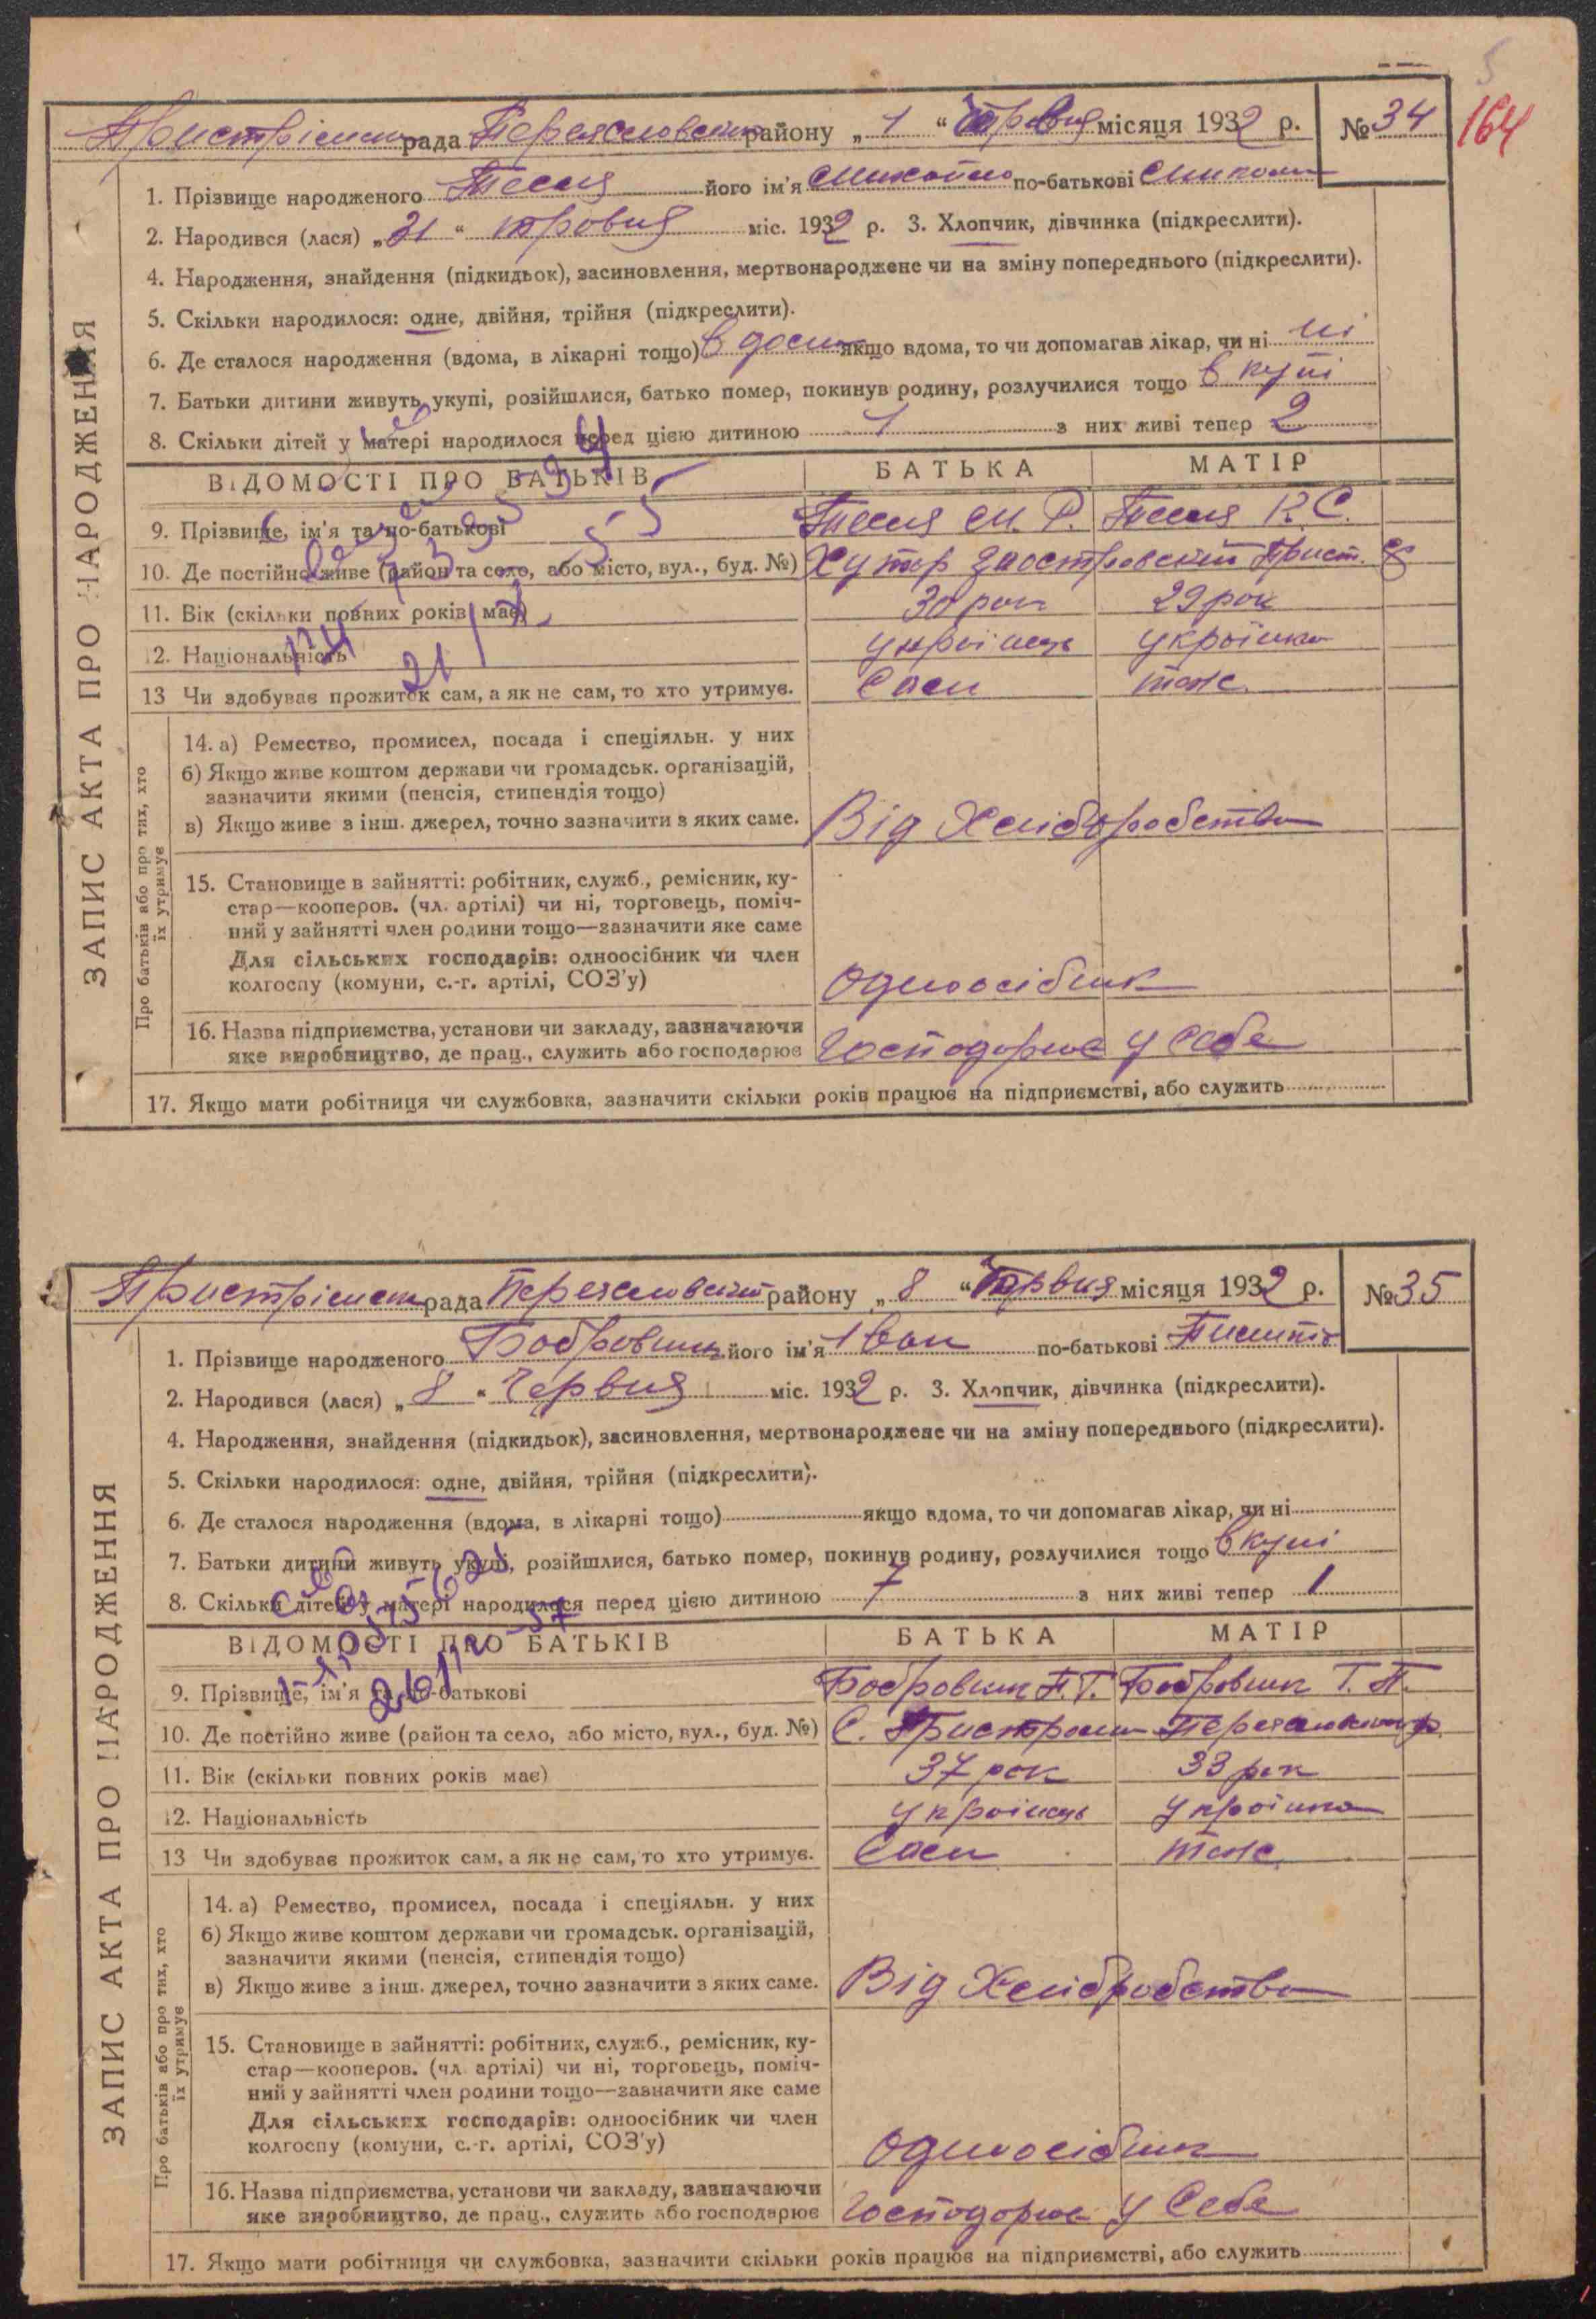 5
164
рада району „ 1 “ місяця 1932 р. № 34
1. Прізвище народженого Тесля його ім'я Михайло по-батькові Микол
2. Народився (лася) „31“ травня міс. 1932 р. 3. Хлопчик, дівчинка (підкреслити).
4. Народження, знайдення (підкидьок), засиновлення, мертвонароджене чи на зміну попереднього (підкреслити).
5. Скільки народилося: одне, двійня, трійня (підкреслити).
6. Де сталося народження (вдома, в лікарні тощо) в дома якщо вдома, то чи допомагав лікар, чи ні ні
7. Батьки дитини живуть укупі, розійшлися, батько помер, покинув родину, розлучилися тощо в купі
8. Скільки дітей у матері народилося перед цією дитиною 1 з них живі тепер 2
ВІДОМОСТІ ПРО БАТЬКІВ БАТЬКА МАТІР
9. Прізвище, ім'я та по-батькові Тесля М. Р. Тесля К. С.
10. Де постійно живе (район та село, або місто, вул., буд. №) Хутір Заостровський Прист.
11. Вік (скільки повних років має) 30 рок 29 рок
12. Національність українець українка
13 Чи здобуває прожиток сам, а як не сам, то хто утримує. Сам тоже
14. а) Ремество, промисел, посада і спеціяльн. у них
б) Якщо живе коштом держави чи громадськ. організацій,
зазначити якими (пенсія, стипендія тощо)
в) Якщо живе з інш. джерел, точно зазначити з яких саме. Від Хліборобства
15. Становище в зайнятті: робітник, служб., ремісник, ку-
стар—кооперов. (чл. артілі) чи ні, торговець, поміч-
ний у зайнятті член родини тощо—зазначити яке саме
Для сільських господарів: одноосібник чи член
колгоспу (комуни, с.-г. артілі, СОЗ'у) Одноосібник
16. Назва підприємства, установи чи закладу, зазначаючи
яке виробництво, де прац., служить або господарює Господорює у Себе
17. Якщо мати робітниця чи службовка, зазначити скільки років працює на підприємстві, або служить
ЗАПИС АКТА ПРО НАРОДЖЕННЯ
Про батьків або про тих, хто
їх утримує
рада району „ 8 “ місяця 1932 р. № 35
1. Прізвище народженого Бобровник його ім'я Іван по-батькові
2. Народився (лася) „ 8 “ Червня міс. 1932 р. 3. Хлопчик, дівчинка (підкреслити).
4. Народження, знайдення (підкидьок), засиновлення, мертвонароджене чи на зміну попереднього (підкреслити).
5. Скільки народилося: одне, двійня, трійня (підкреслити).
6. Де сталося народження (вдома, в лікарні тощо) якщо вдома, то чи допомагав лікар, чи ні
7. Батьки дитини живуть укупі, розійшлися, батько помер, покинув родину, розлучилися тощо в купі
8. Скільки дітей у матері народилося перед цією дитиною 7 з них живі тепер 1
ВІДОМОСТІ ПРО БАТЬКІВ БАТЬКА МАТІР
9. Прізвище, ім'я та по-батькові Бобровник П. Т. Бобровник Т. П.
10. Де постійно живе (район та село, або місто, вул., буд. №) С.
11. Вік (скільки повних років має) 37 рок 33 рок
12. Національність українець українка
13 Чи здобуває прожиток сам, а як не сам, то хто утримує. Сам тоже
14. а) Ремество, промисел, посада і спеціяльн. у них
б) Якщо живе коштом держави чи громадськ. організацій,
зазначити якими (пенсія, стипендія тощо)
в) Якщо живе з інш. джерел, точно зазначити з яких саме. Від Хліборобства
15. Становище в зайнятті: робітник, служб., ремісник, ку-
стар—кооперов. (чл. артілі) чи ні, торговець, поміч-
ний у зайнятті член родини тощо—зазначити яке саме
Для сільських господарів: одноосібник чи член
колгоспу (комуни, с.-г. артілі, СОЗ'у) Одноосібник
16. Назва підприємства, установи чи закладу, зазначаючи
яке виробництво, де прац., служить або господарює Господорює у Себе
17. Якщо мати робітниця чи службовка, зазначити скільки років працює на підприємстві, або служить
ЗАПИС АКТА ПРО НАРОДЖЕННЯ
Про батьків або про тих, хто
їх утримує